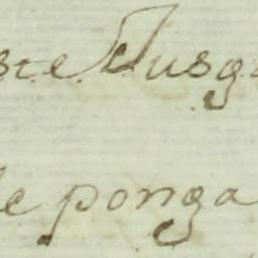 ste Jusga
le ponga